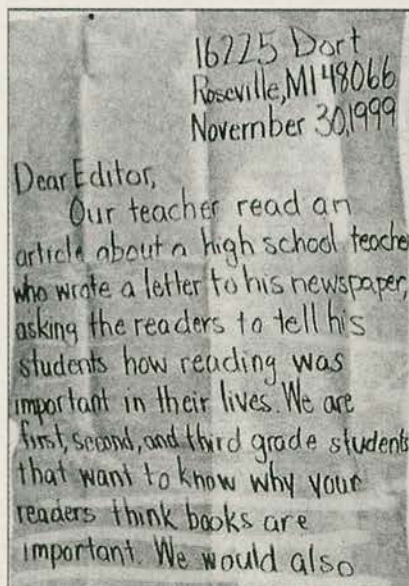 16225 Dort
Roseville, MI 48066
November 30, 1999
Dear Editor,
Our teacher read an
article about a high school teacher
who wrote a letter to his newspaper,
asking the readers to tell his
students how reading was
important in their lives. We are
first, second, and third grade students
that want to know why your
readers think books are
important. We would also